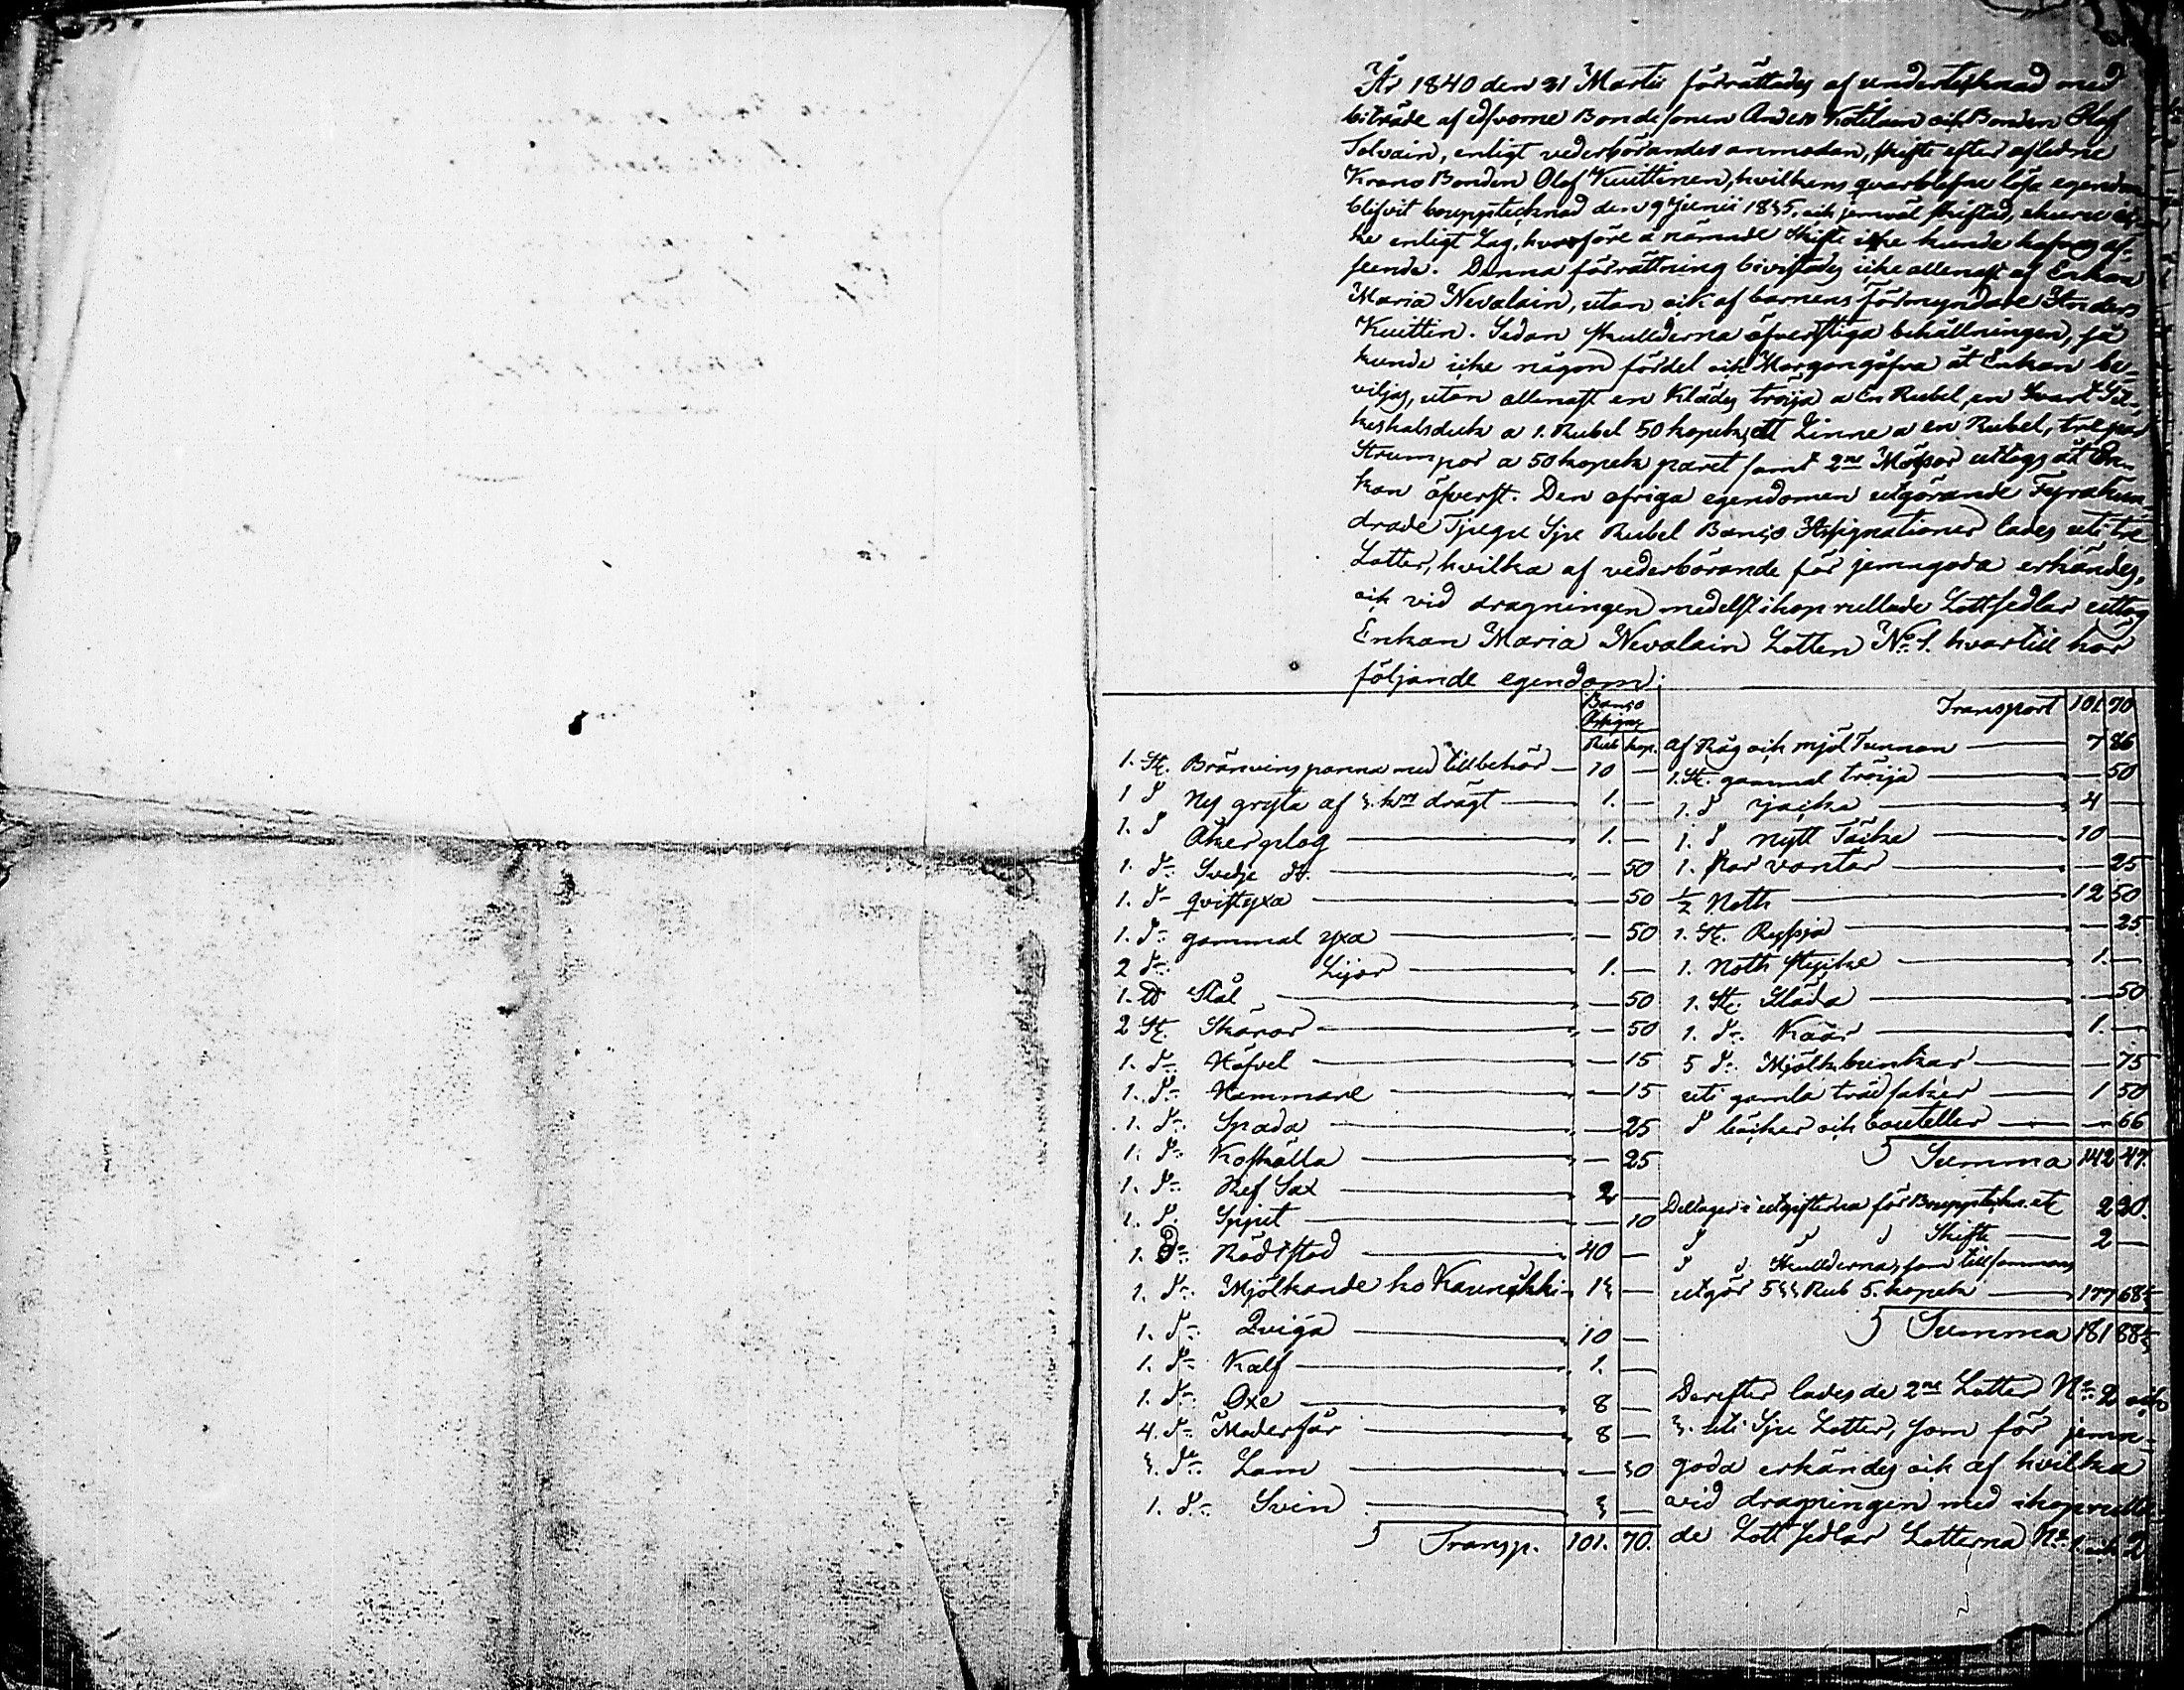 År 1840 den 31 Martii förrättades af undertecknad med
biträde af edsvorne Bondesonen Anders Kotilain och Bonden Olof
Tolvain, enligt vederbörandes anmodan, skifte efter afledne
Krono Bonden Olof Kuittinen, hvilkens qvarblefne lösa egendom
blifvit bouppteknad den 9 Junii 1835, och jemväl skiftad, ehuru ic-
ke enligt Lag, hvarföre å nämnde skifte icke kunde hafvas af-
seende. Denna förrättning bivistades icke allenast af Enkan
Maria Nevalain, utan och af barnens förmyndare Anders
Kuittin. Sedan skullderna öfverstiga behållningen, så
kunde icke någon fördel och Morgongåfva åt Enkan be-
viljas, utan allenast en Klädes tröija a En Rubel, en Svart Sil-
keshalsduk a 1. Rubel 50 kopek, ett Linne a en Rubel, tre par
Strumpor a 50 kopek paret samt 2ne Mössor uttogs åt En-
kan öfverst. Den öfriga egendomen utgörande Fyrahun-
drade Tjugu Sju Rubel Banco Assignationer lades uti tre
Lotter, hvilka af vederbörande för jemngoda erkändes,
och vid dragningen medelst ihop rullade Lottsedlar uttog
Enkan Maria Nevalain Lotten No 1. hvartill hör
följande egendom:
Banco
Assigns
Rub kop.
1. St. Bränvinspanna med tillbehör — 10 —
1 d Ny gryta af 3. krs drägt — 1. —
1. d Åkerplog — 1. —
1. do Svedje do. — 50
1. do qvistyxa — 50
1. do gammal yxa — 50
2 do Lijor — 1. —
1. ℔ Stål — 50
2 St. Skäror — 50
1. do Höfvel — 15
1. do Hammare — 15
1. do Spada — 25
1. do Koskälla — 25
1. do Ref Sax — 2 —
1. d. Spjut — 10
1. do Rödt sto — 40 —
1. do Mjölkande ko Kaunikki — 13 —
1. do Qviga — 10 —
1. do Kalf — 1. —
1. do Oxe — 8 —
4. do Moderfår — 8 —
3. do Lam — 30
1. do Svin — 3 —
Transp. 101. 70.
Transport 101. 70
af Råg och mjöl Tunnan — 7 86
1. St. gammal tröija — 50
1. d jacka — 4 —
1. d nytt Täcke — 10 —
1. Par vantar — 25
½ Noth — 12 50
1. St. Ryssja — 25
1. Noth stycke — 1. —
1. St. Släda — 50
1. do Kaar — 1. —
5 do Mjölkbunkar — 75
uti gamla träd saker — 1 50
d böcker och bouteller — 66
Summa 142 47.
Deltager i utgifterna för Bouppteckn. etc 2 20.
d d d Skifte — 2 —
d d Skullderna, som tillsammans
utgör 533 Rub 5. kopek — 177 68⅓
Summa 181 88⅓
Derefter lades de 2ne Lotter No 2 och
3. uti Sju Lotter, som för jemn-
goda erkändes och af hvilka
vid dragningen med ihoprulla-
de Lott Sedlar Lotterna No 1. och 2